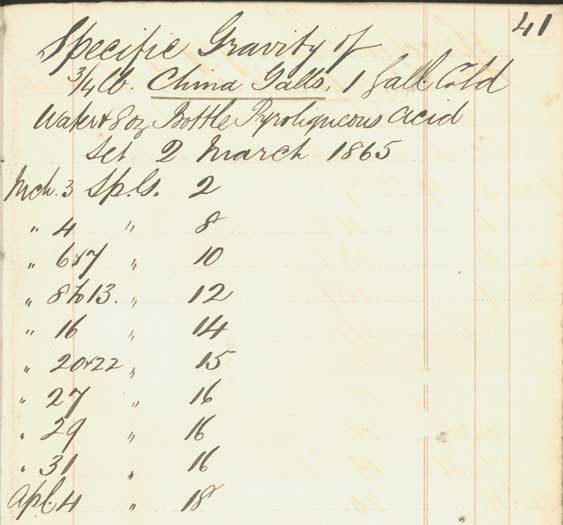 41
Specific Gravity of
3/4 lb. China Galls, 1 Gall. Cold
Water & 8 oz Bottle Pyroligneous Acid
Set 2 March 1865
Mch. 3 Sp.G. 2
" 4 " 8
" 6&7 " 10
" 8 to 13. " 12
" 16 " 14
" 20&22 " 15
" 27 " 16
" 29 " 16
" 31 " 16
Apl. 4 " 18